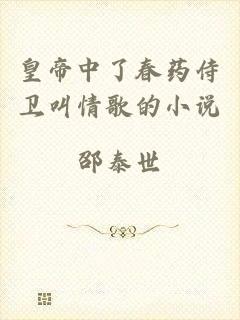 皇帝中了春药侍
卫叫情歌的小说
邵泰世